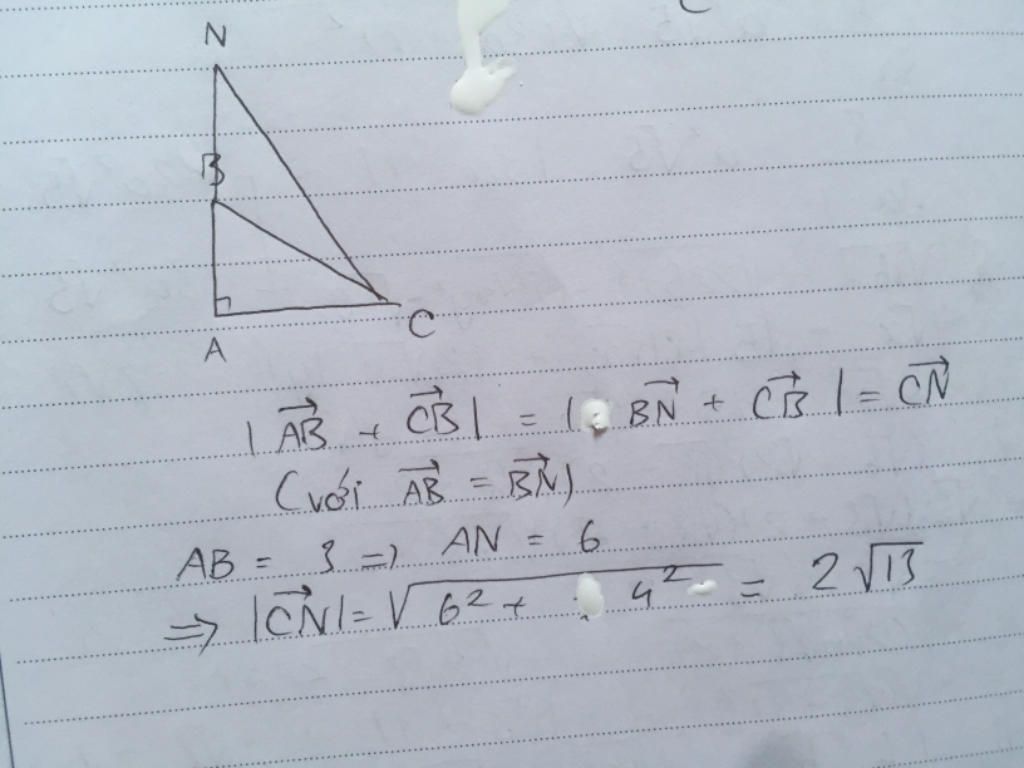 N
B
A
C
|$\overrightarrow{AB}$ + $\overrightarrow{CB}$| = | $\overrightarrow{BN}$ + $\overrightarrow{CB}$ | = $\overrightarrow{CN}$
(với $\overrightarrow{AB}$ = $\overrightarrow{BN}$)
AB = 3 => AN = 6
=> |$\overrightarrow{CN}$| = $\sqrt{6^2 + 4^2}$ = 2$\sqrt{13}$